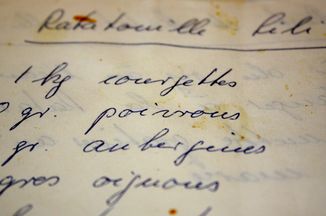 Ratatouille Lili
1 kg courgettes
0 gr. poivrons
gr. aubergines
gres oignons